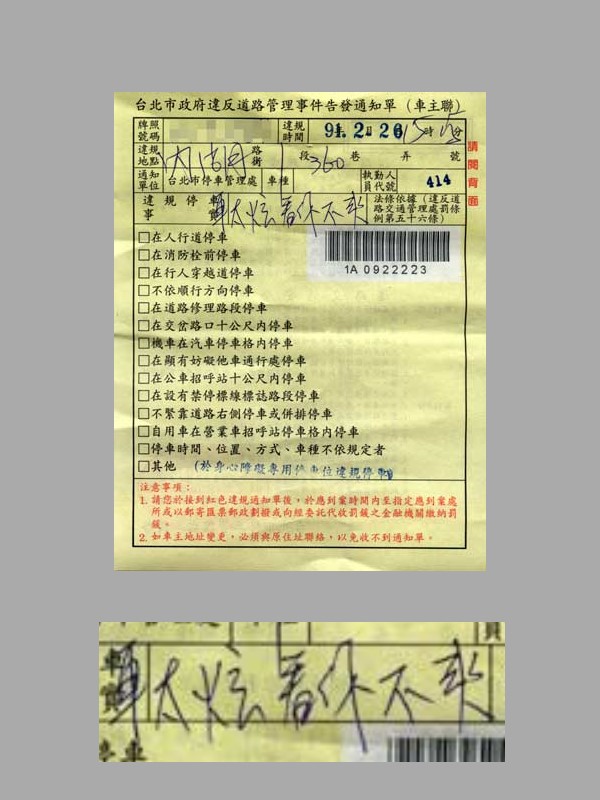 台北市政府違反道路管理事件告發通知單(車主聯)
牌照號碼 違規時間 91. 2. 26 15時 分
違規地點 內湖 路街 1 段 360 巷 弄 號
通知單位 台北市停車管理處 車種 執勤人員代號 414
違規事實 停車 車太炫看你不爽 法條依據(違反道路交通管理處罰條例第五十六條)
請閱背面
1A 0922223
□在人行道停車
□在消防栓前停車
□在行人穿越道停車
□不依順行方向停車
□在道路修理路段停車
□在交岔路口十公尺內停車
□機車在汽車停車格內停車
□在顯有妨礙他車通行處停車
□在公車招呼站十公尺內停車
□在設有禁停標線標誌路段停車
□不緊靠道路右側停車或併排停車
□自用車在營業車招呼站停車格內停車
□停車時間、位置、方式、車種不依規定者
□其他 (於身心障礙專用停車位違規停車)
注意事項:
1. 請您於接到紅色違規通知單後,於應到案時間內至指定應到案處
所或以郵寄匯票郵政劃撥或向經委託代收罰鍰之金融機關繳納罰
鍰。
2. 如車主地址變更,必須與原住址聯絡,以免收不到通知單。
車太炫看你不爽